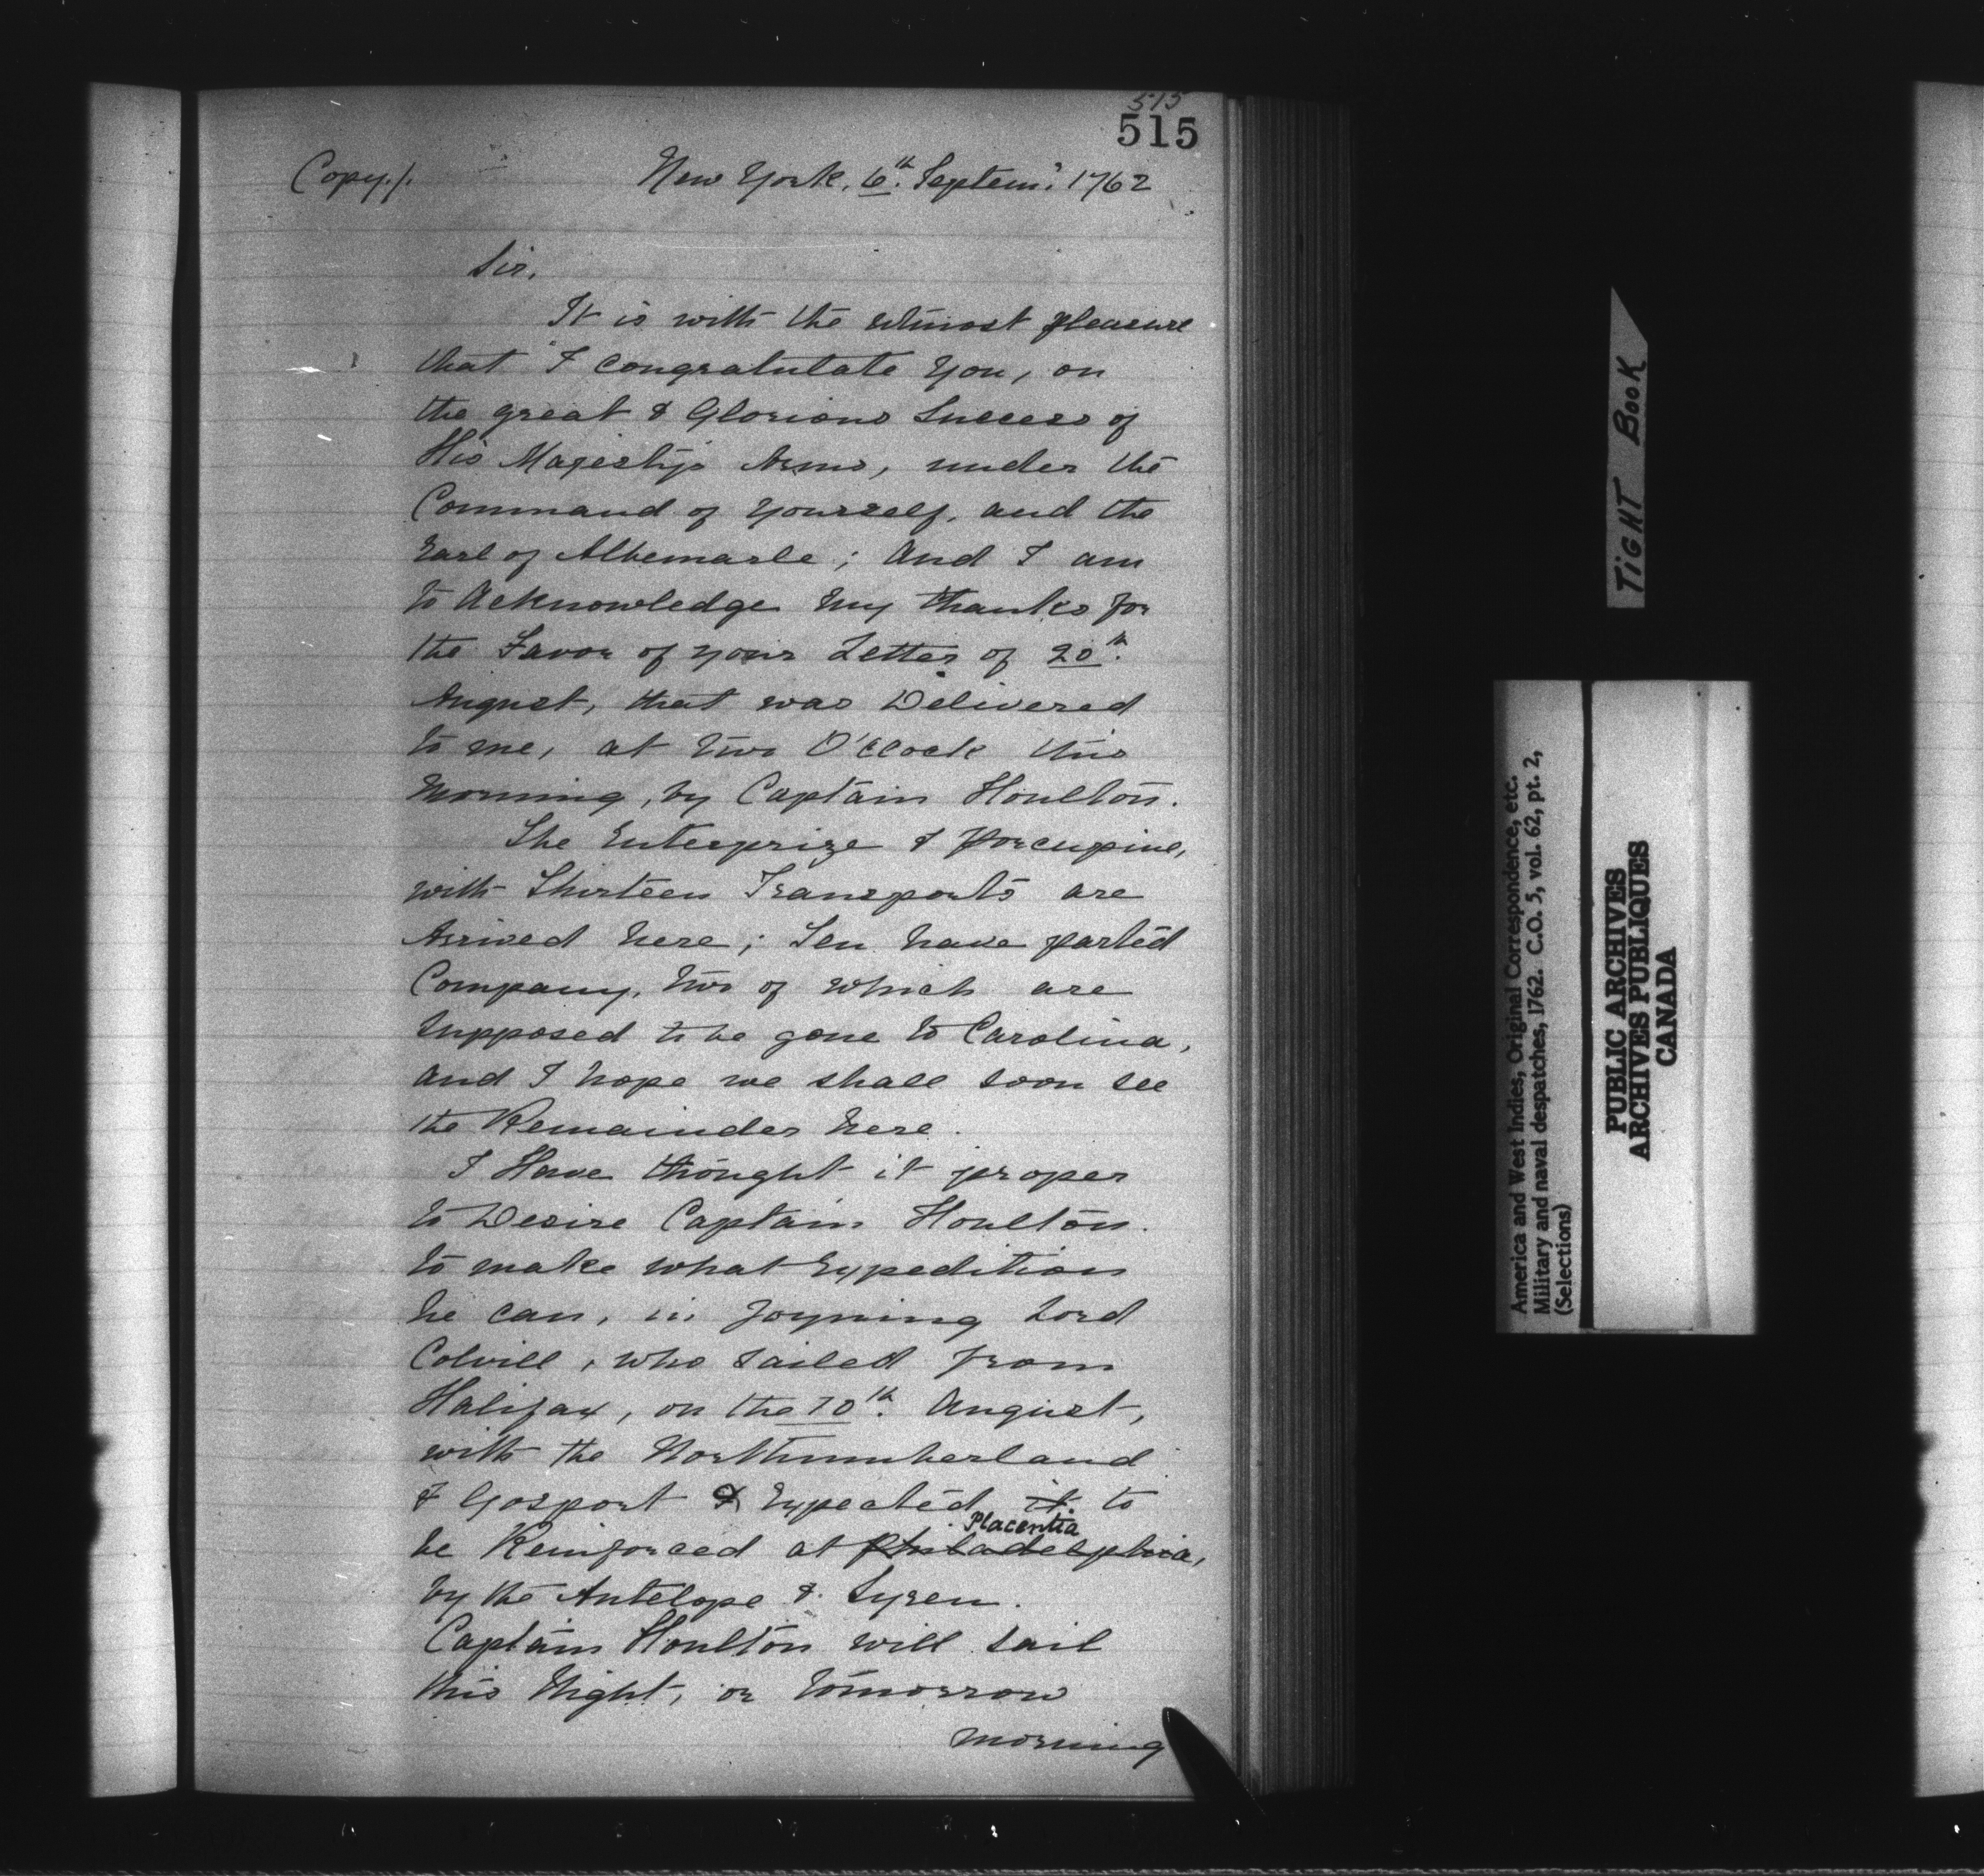 515
515
Copy./.
New York. 6th. Septem.r 1762
Sir.
It is with the utmost pleasure
that I congratulate You, on
the great & Glorious Success of
His Majesty's Arms, under the
Command of Yourself, and the
Earl of Albemarle; And I am
to Acknowledge my thanks for
the Favor of your Letter of 20th.
August, that was Delivered
to me, at two O'Clock this
Morning, by Captain Houlton.
The Enterprize & Porcupine,
with Thirteen Transports are
Arrived here; Ten have parted
Company, two of which are
Supposed to be gone to Carolina,
and I hope we shall soon see
the Remainder here.
I Have thought it proper
to Desire Captain Houlton.
to make what Expedition
he can, in Joyning Lord
Colvill, who sailed from
Halifax, on the 10th. August,
with the Northumberland
& Gosport & Expected it to
Placentia
be Reinforced at Philadelphia,
by the Antelope & Syren.
Captain Houlton will sail
this Night, or tomorrow
morning
TIGHT BOOK
America and West Indies, Original Correspondence, etc.
Military and naval despatches, 1762. C.O. 5, vol. 62, pt. 2,
(Selections)
PUBLIC ARCHIVES
ARCHIVES PUBLIQUES
CANADA